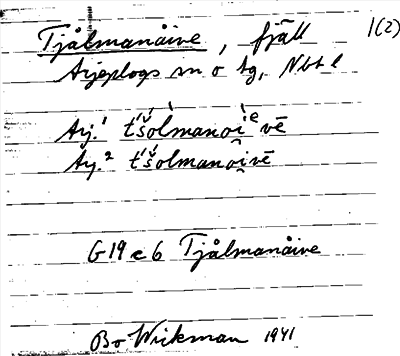 Tjålmanåive, fjäll 1(2)
Arjeplogs sn o tg, Nbt l
Arj.¹ t́š́olmanoìᵉvē
Arj.² t́š́olmanoi̭vē
G19 c 6 Tjålmanåive
Bo Wickman 1941